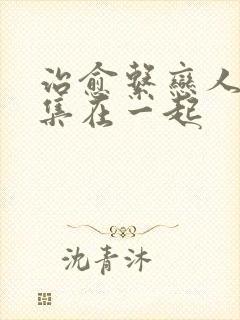 治愈繫戀人
集在一起
沈青沐